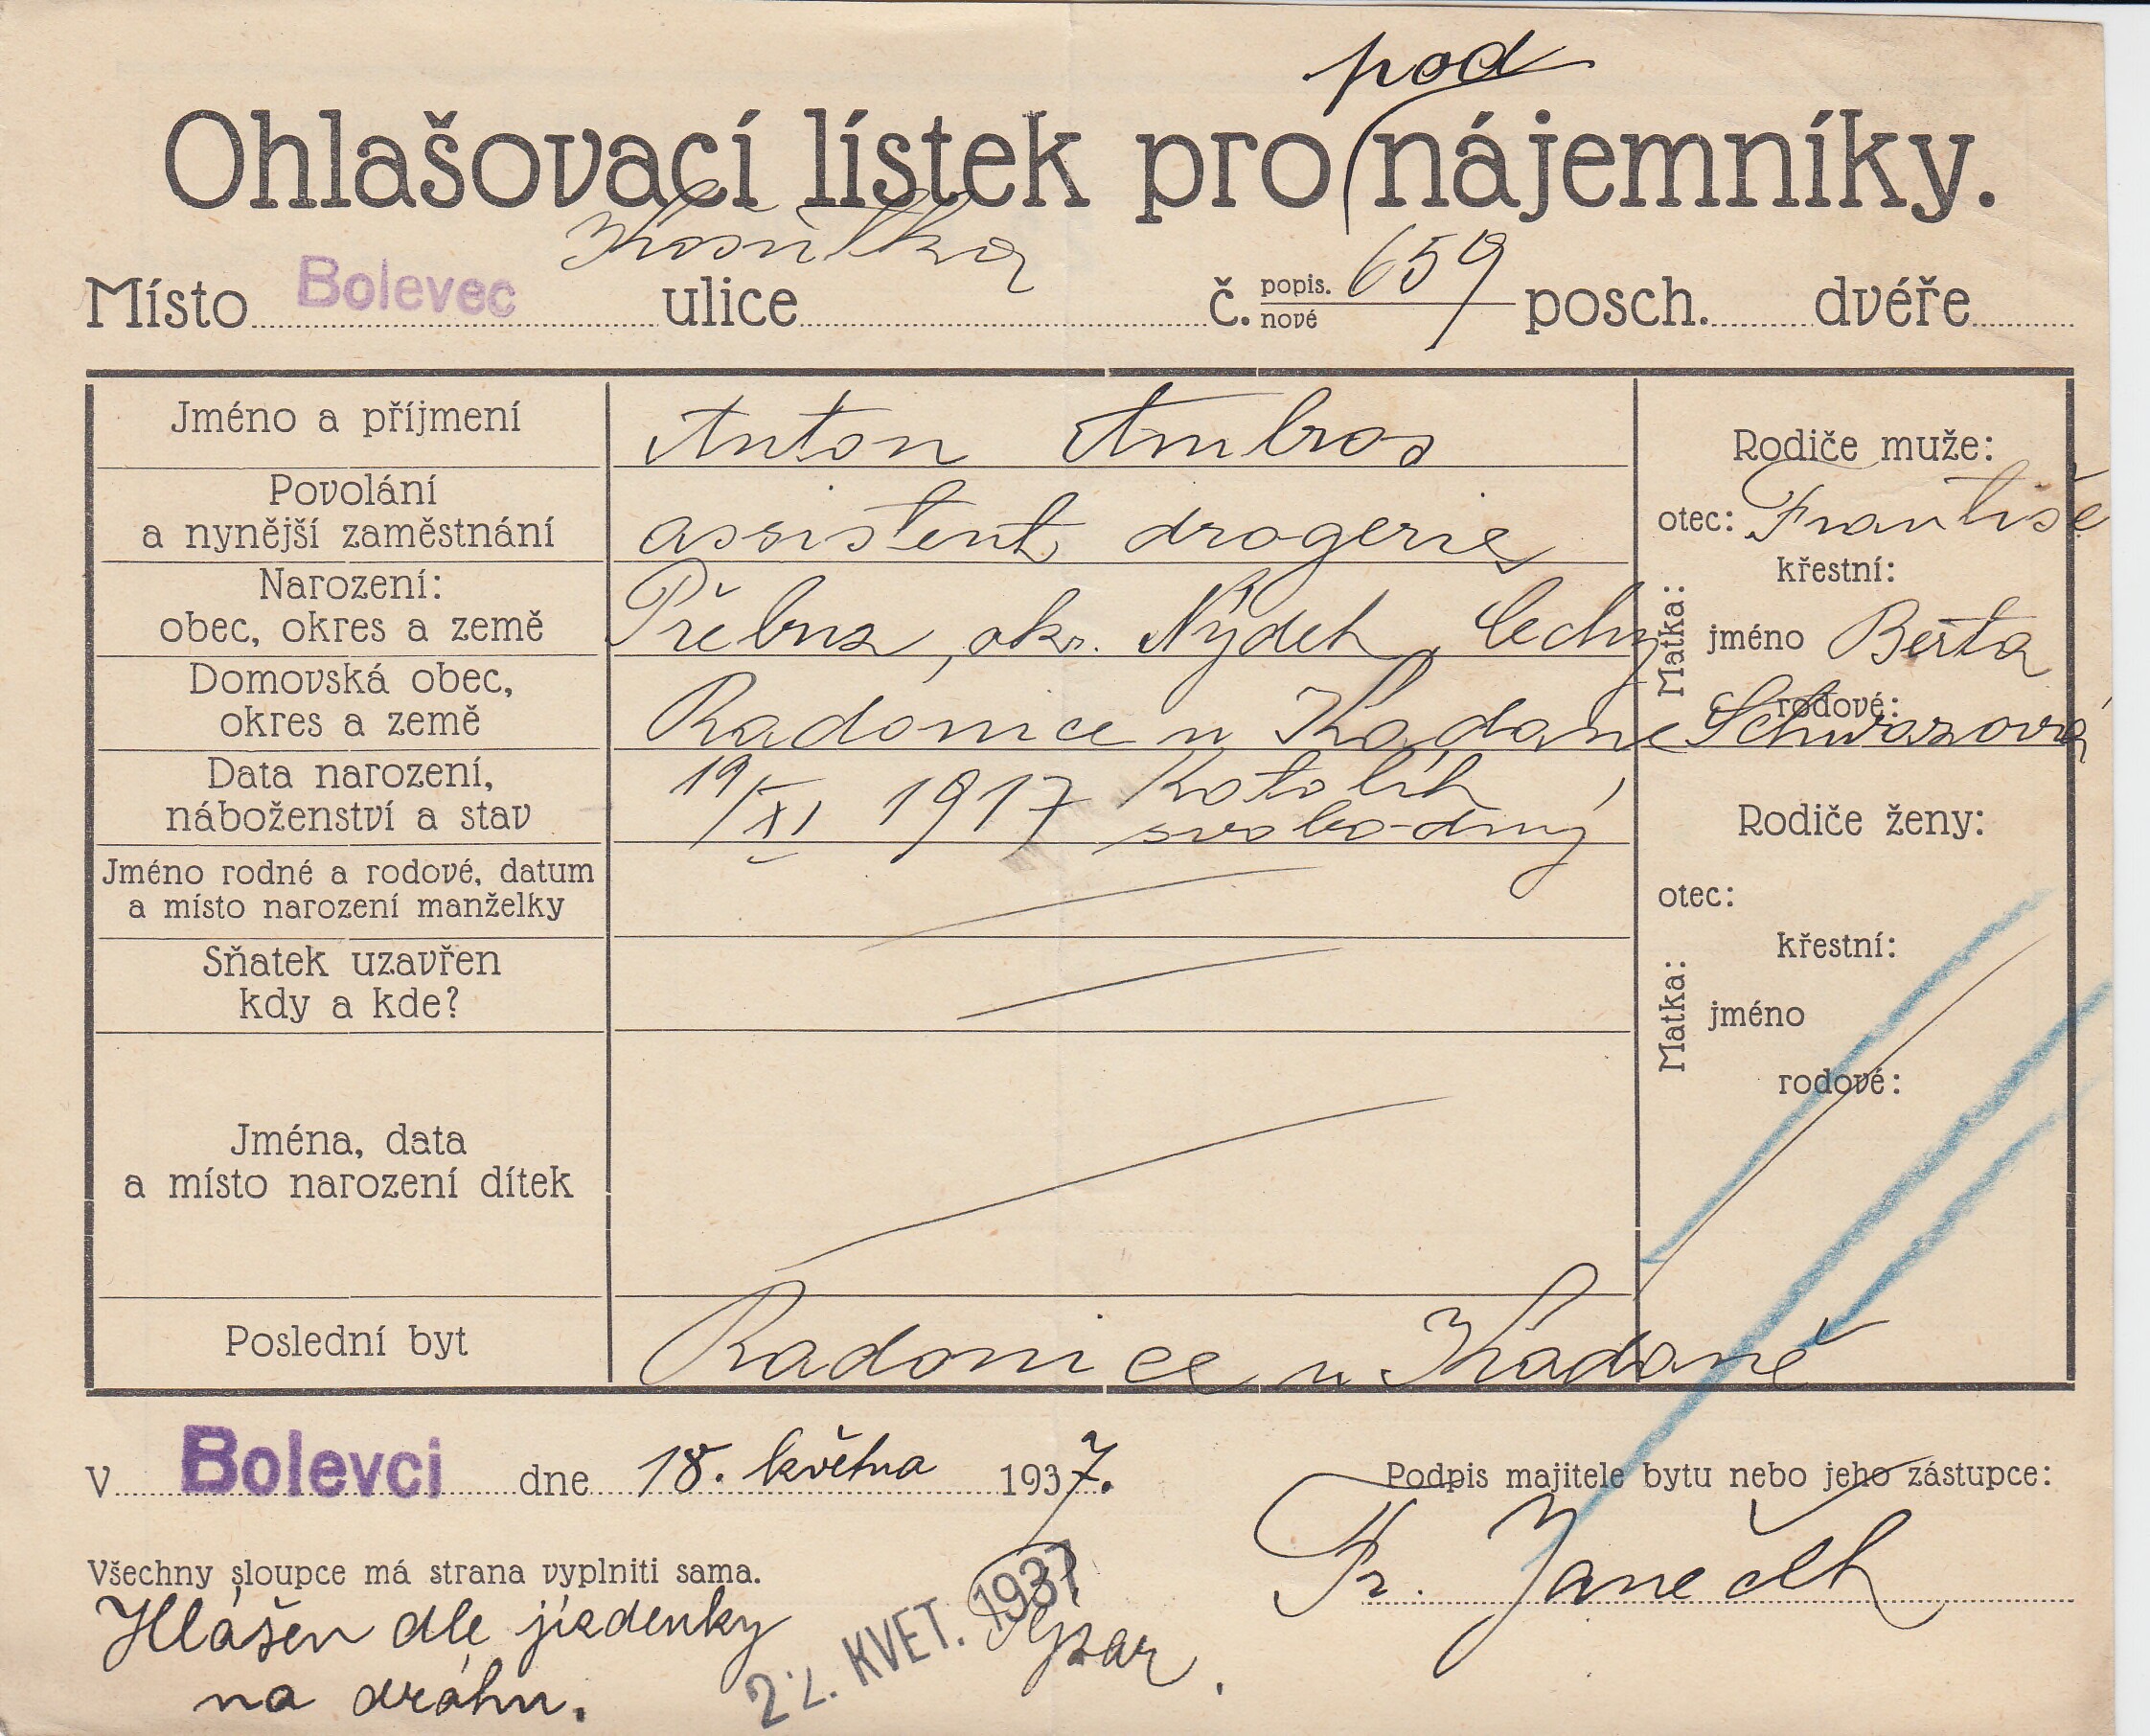 pod
Ohlašovací lístek pro nájemníky.
Košutka
Místo Bolevec ulice č. popis. 659 posch. dvéře
nové
Jméno a příjmení Anton Ambros
Rodiče muže:
Povolání
a nynější zaměstnání assistent drogerie
otec: Františe
Narození:
obec, okres a země Přebuz, okr. Nýdek, Čechy
Matka: křestní:
jméno Berta
rodové: Schwarzová
Domovská obec,
okres a země Radonice u Kadane
Data narození,
náboženství a stav 19/XI 1917 Katolík,
svobodný
Rodiče ženy:
Jméno rodné a rodové, datum
a místo narození manželky
otec:
Sňatek uzavřen
kdy a kde?
Matka: křestní:
jméno
rodové:
Jména, data
a místo narození dítek
Poslední byt Radonice u Kadaně
V Bolevci dne 18. května 1937.
Podpis majitele bytu nebo jeho zástupce:
Fr. Janeček
Všechny sloupce má strana vyplniti sama.
Hlášen dle jízdenky
na dráhu.
KVET. 1937